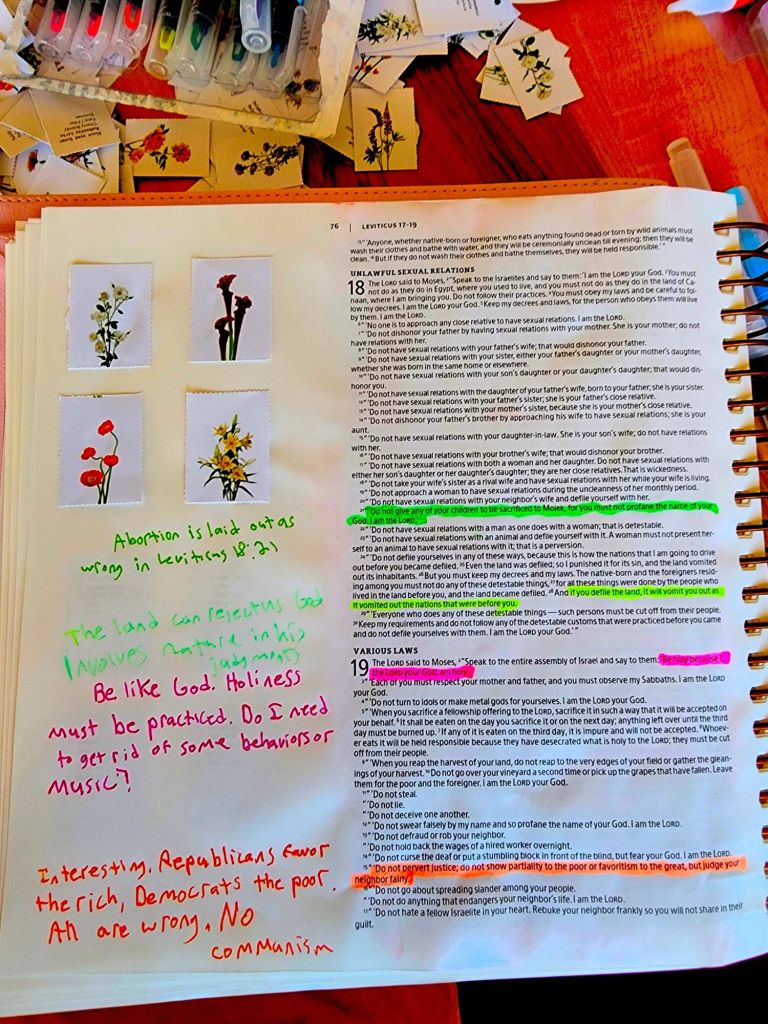 76 | LEVITICUS 17-19
15 "'Anyone, whether native-born or foreigner, who eats anything found dead or torn by wild animals must
wash their clothes and bathe with water, and they will be ceremonially unclean till evening; then they will be
clean. 16 But if they do not wash their clothes and bathe themselves, they will be held responsible.'"
UNLAWFUL SEXUAL RELATIONS
18 The LORD said to Moses, 2 "Speak to the Israelites and say to them: 'I am the LORD your God. 3 You must
not do as they do in Egypt, where you used to live, and you must not do as they do in the land of Ca-
naan, where I am bringing you. Do not follow their practices. 4 You must obey my laws and be careful to fol-
low my decrees. I am the LORD your God. 5 Keep my decrees and laws, for the person who obeys them will live
by them. I am the LORD.
6 "'No one is to approach any close relative to have sexual relations. I am the LORD.
7 "'Do not dishonor your father by having sexual relations with your mother. She is your mother; do not
have relations with her.
8 "'Do not have sexual relations with your father's wife; that would dishonor your father.
9 "'Do not have sexual relations with your sister, either your father's daughter or your mother's daughter,
whether she was born in the same home or elsewhere.
10 "'Do not have sexual relations with your son's daughter or your daughter's daughter; that would dis-
honor you.
11 "'Do not have sexual relations with the daughter of your father's wife, born to your father; she is your sister.
12 "'Do not have sexual relations with your father's sister; she is your father's close relative.
13 "'Do not have sexual relations with your mother's sister, because she is your mother's close relative.
14 "'Do not dishonor your father's brother by approaching his wife to have sexual relations; she is your
aunt.
15 "'Do not have sexual relations with your daughter-in-law. She is your son's wife; do not have relations
with her.
16 "'Do not have sexual relations with your brother's wife; that would dishonor your brother.
17 "'Do not have sexual relations with both a woman and her daughter. Do not have sexual relations with
either her son's daughter or her daughter's daughter; they are her close relatives. That is wickedness.
18 "'Do not take your wife's sister as a rival wife and have sexual relations with her while your wife is living.
19 "'Do not approach a woman to have sexual relations during the uncleanness of her monthly period.
20 "'Do not have sexual relations with your neighbor's wife and defile yourself with her.
21 "'Do not give any of your children to be sacrificed to Molek, for you must not profane the name of your
God. I am the LORD.
22 "'Do not have sexual relations with a man as one does with a woman; that is detestable.
23 "'Do not have sexual relations with an animal and defile yourself with it. A woman must not present her-
self to an animal to have sexual relations with it; that is a perversion.
24 "'Do not defile yourselves in any of these ways, because this is how the nations that I am going to drive
out before you became defiled. 25 Even the land was defiled; so I punished it for its sin, and the land vomited
out its inhabitants. 26 But you must keep my decrees and my laws. The native-born and the foreigners resid-
ing among you must not do any of these detestable things, 27 for all these things were done by the people who
lived in the land before you, and the land became defiled. 28 And if you defile the land, it will vomit you out as
it vomited out the nations that were before you.
29 "'Everyone who does any of these detestable things — such persons must be cut off from their people.
30 Keep my requirements and do not follow any of the detestable customs that were practiced before you came
and do not defile yourselves with them. I am the LORD your God.'"
VARIOUS LAWS
19 The LORD said to Moses, 2 "Speak to the entire assembly of Israel and say to them: 'Be holy because I,
the LORD your God, am holy.
3 "'Each of you must respect your mother and father, and you must observe my Sabbaths. I am the LORD
your God.
4 "'Do not turn to idols or make metal gods for yourselves. I am the LORD your God.
5 "'When you sacrifice a fellowship offering to the LORD, sacrifice it in such a way that it will be accepted on
your behalf. 6 It shall be eaten on the day you sacrifice it or on the next day; anything left over until the third
day must be burned up. 7 If any of it is eaten on the third day, it is impure and will not be accepted. 8 Whoev-
er eats it will be held responsible because they have desecrated what is holy to the LORD; they must be cut
off from their people.
9 "'When you reap the harvest of your land, do not reap to the very edges of your field or gather the glean-
ings of your harvest. 10 Do not go over your vineyard a second time or pick up the grapes that have fallen. Leave
them for the poor and the foreigner. I am the LORD your God.
11 "'Do not steal.
"'Do not lie.
"'Do not deceive one another.
12 "'Do not swear falsely by my name and so profane the name of your God. I am the LORD.
13 "'Do not defraud or rob your neighbor.
"'Do not hold back the wages of a hired worker overnight.
14 "'Do not curse the deaf or put a stumbling block in front of the blind, but fear your God. I am the LORD.
15 "'Do not pervert justice; do not show partiality to the poor or favoritism to the great, but judge your
neighbor fairly.
16 "'Do not go about spreading slander among your people.
"'Do not do anything that endangers your neighbor's life. I am the LORD.
17 "'Do not hate a fellow Israelite in your heart. Rebuke your neighbor frankly so you will not share in their
guilt.
Abortion is laid out as
wrong in Leviticus 18:21
The land can reject us God
involves nature in his
judgments
Be like God. Holiness
must be practiced. Do I need
to get rid of some behaviors or
music?
Interesting. Republicans favor
the rich, Democrats the poor.
All are wrong. No
communism